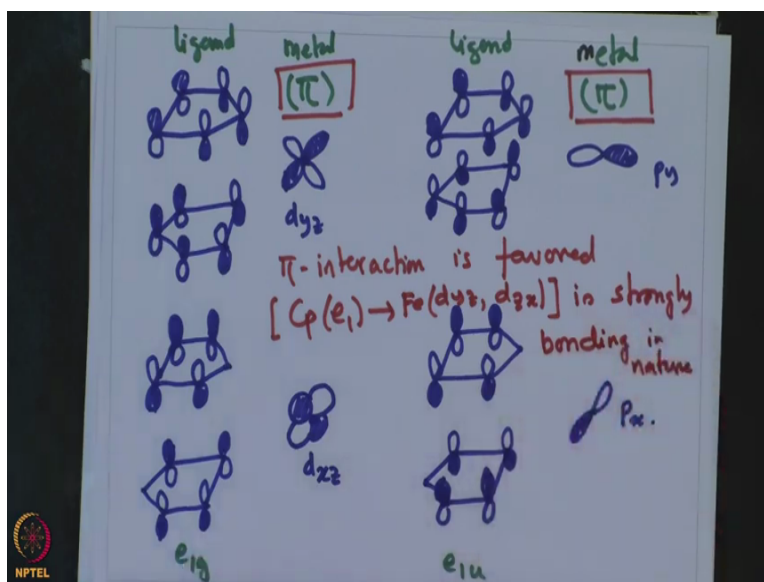 ligand metal ligand metal
(π) (π)
dyz py
π-interaction is favored
[Cp(e1)→Fe(dyz, dzx)] is strongly
bonding in
nature
dxz px.
e1g e1u
NPTEL